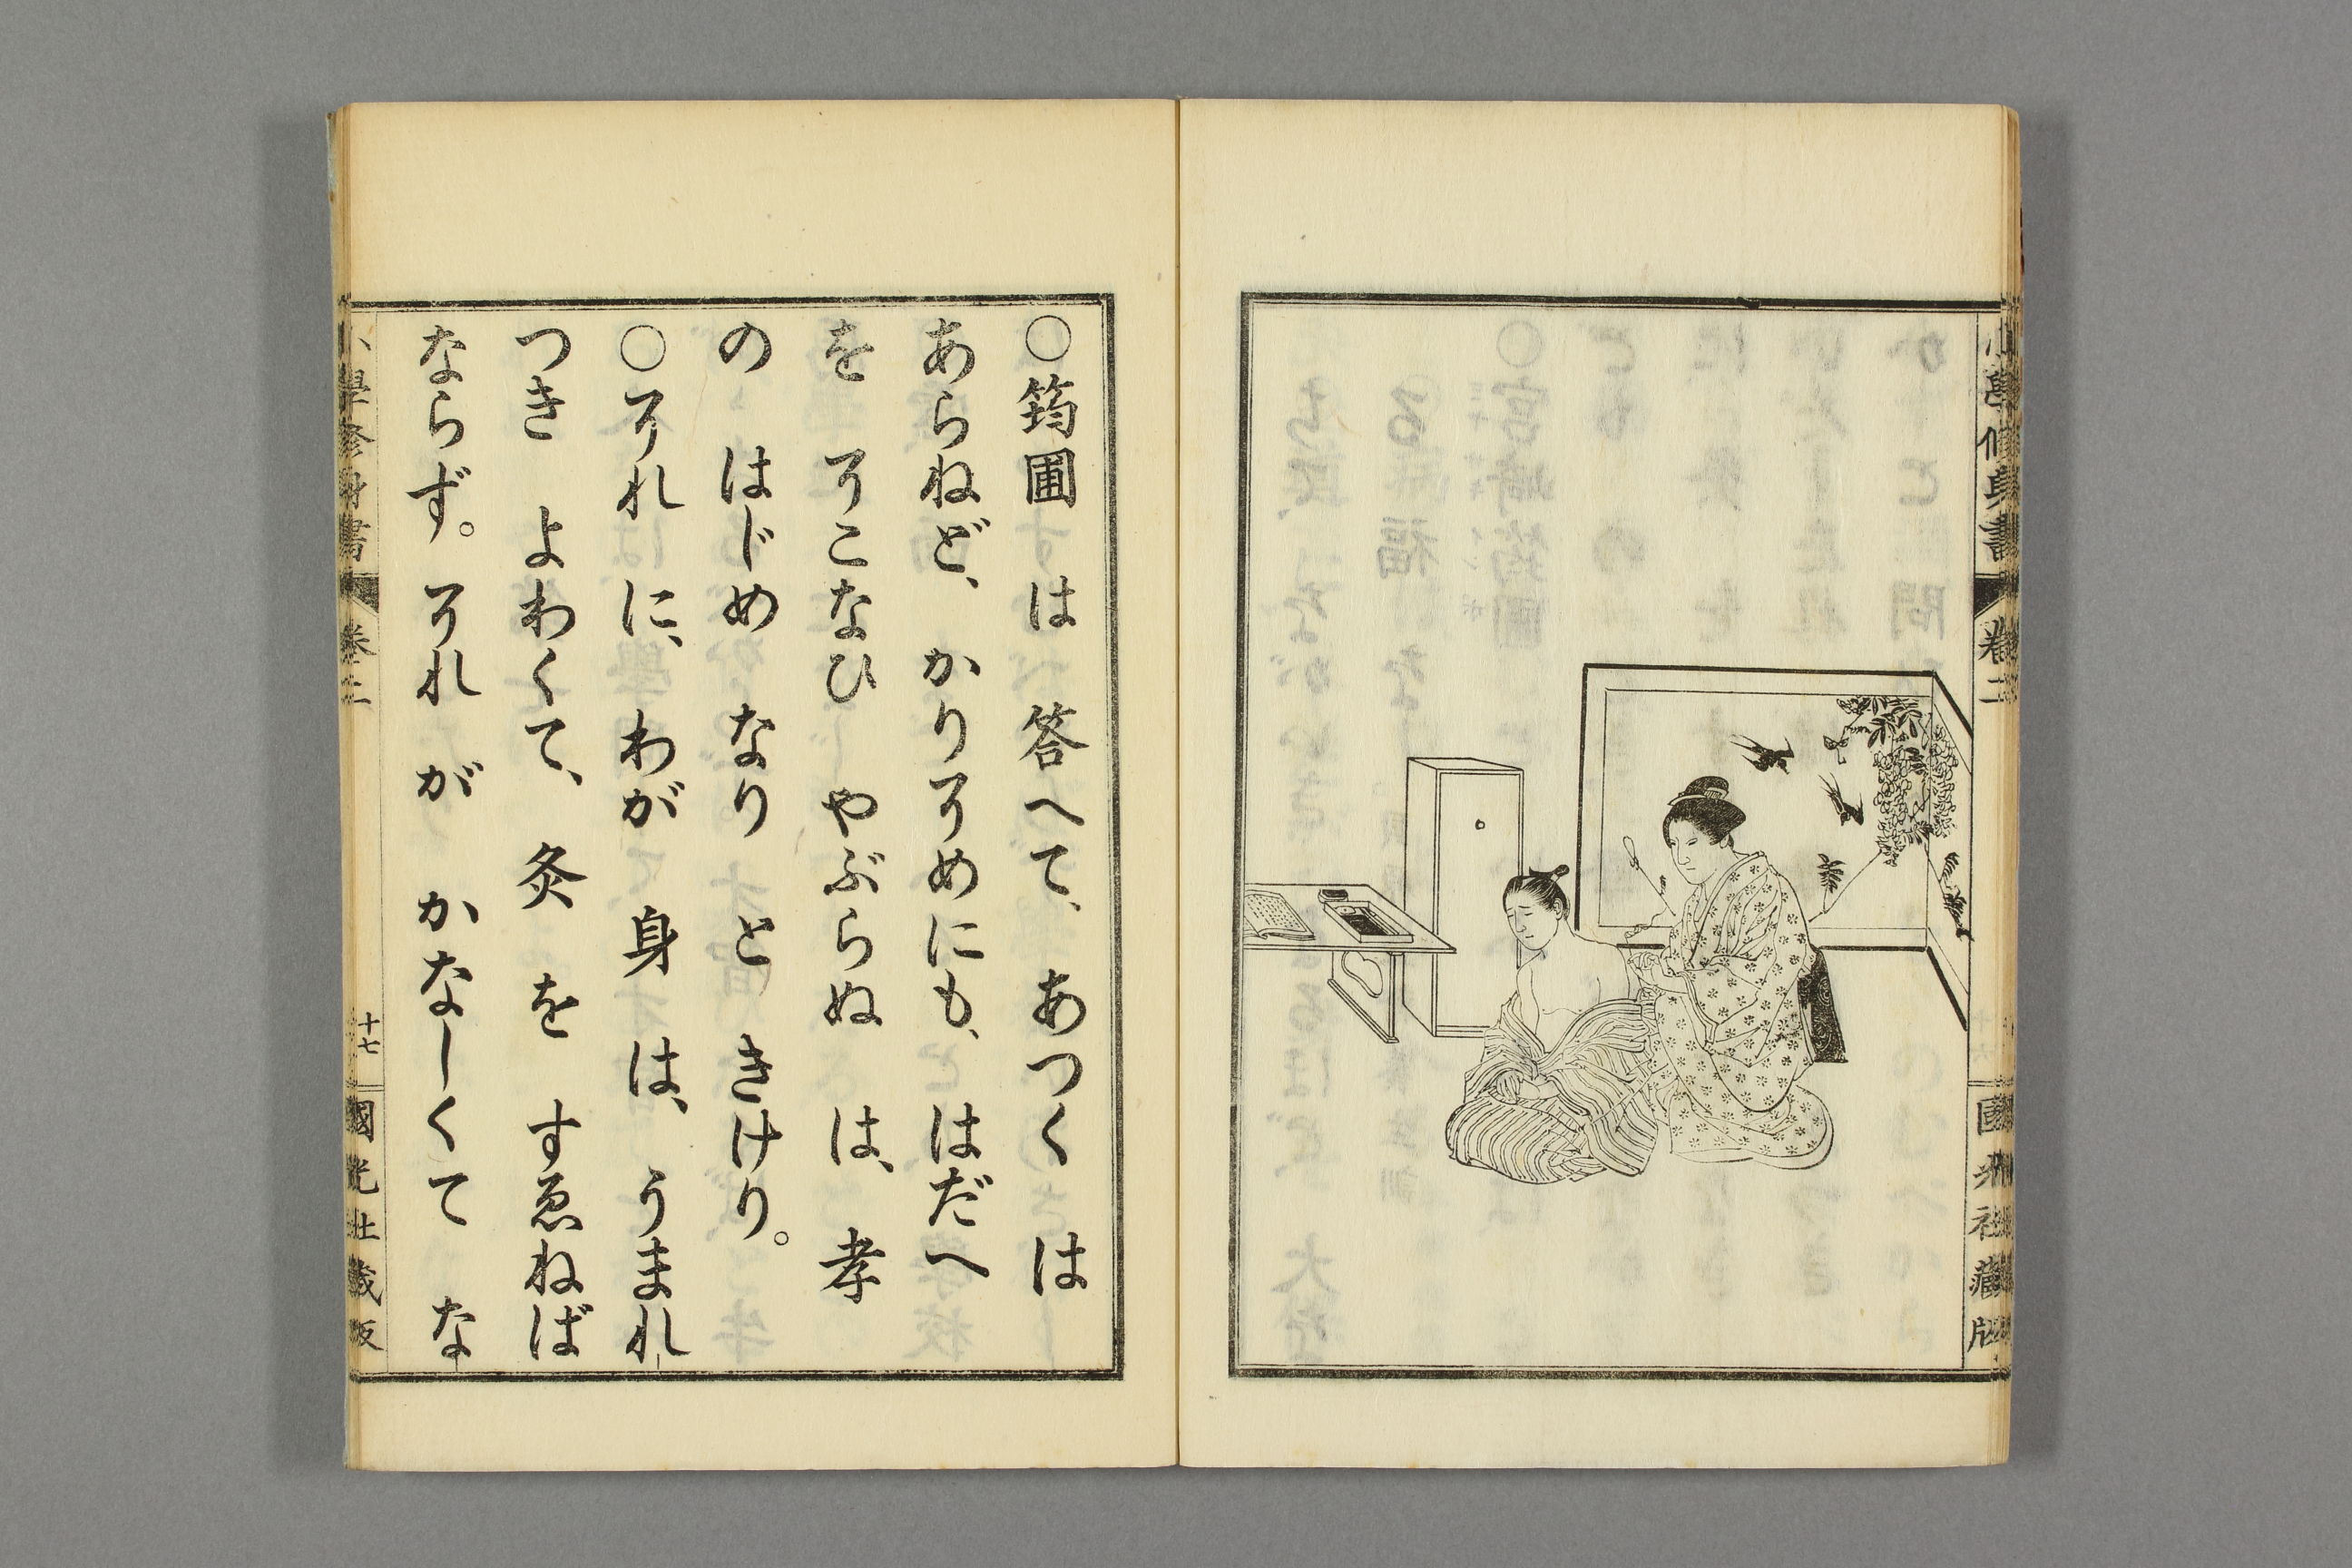 小學修身書 卷二
國光社藏版
○筠圃 は 答へて、 あつく は
あらねど、 かりそめにも、 はだへ
を そこなひ やぶらぬ は、 孝
の はじめ なり と きけり。
○それ に、 わが 身 は、 うまれ
つき よわくて、 灸 を すゑねば
ならず。 それ が かなしくて な
小學修身書 卷二 十七 國光社藏版